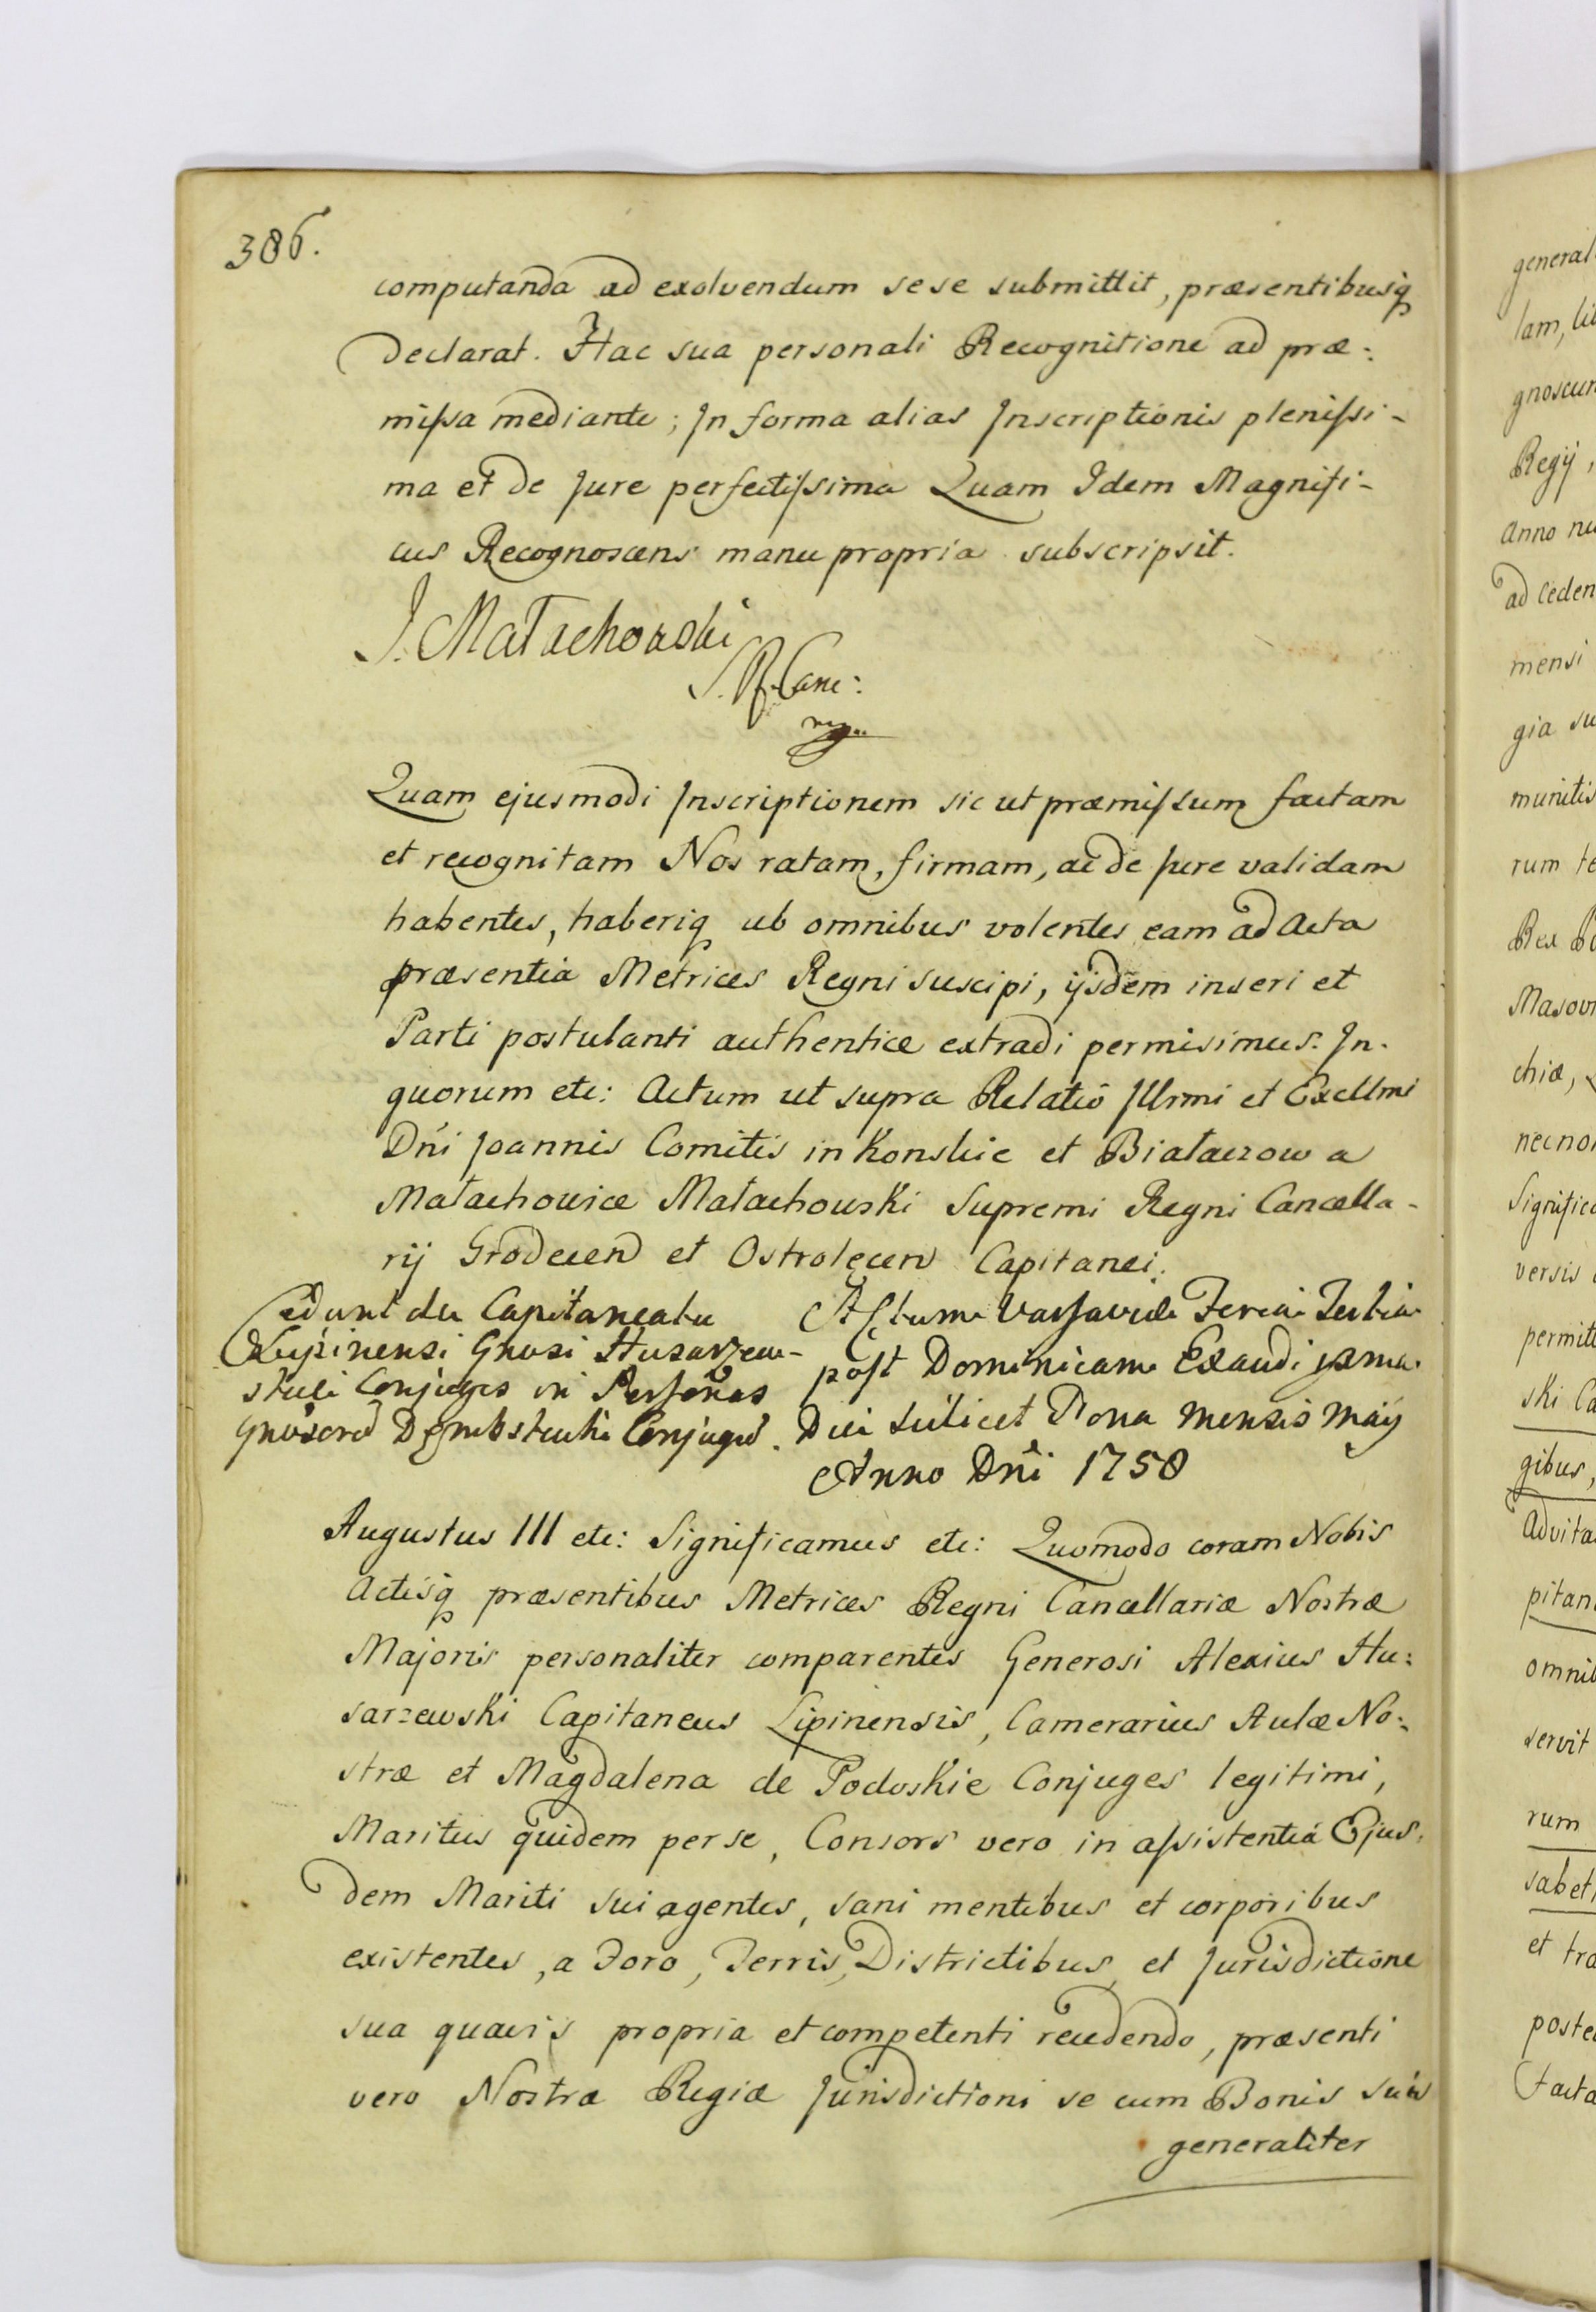 386.
computanda ad exolvendum sese submittit, præsentibusq
declarat. Hac sua personali Recognitione ad præ:
missa mediante; In forma alias Inscriptionis plenissi-
ma et de Jure perfectissima Quam Idem Magnifi-
cus Recognoscens manu propria subscripsit.
J. Małachowski
S. R. Canc:
Quam ejusmodi Inscriptionem sic ut præmissum factam
et recognitam Nos ratam, firmam, ac de Jure validam
habentes, haberiq ab omnibus volentes eam ad Acta
præsentia Metrices Regni suscipi, ijsdem inseri et
Parti postulanti authentice extradi permisimus. In.
quorum etc: Actum ut supra Relatio Illrmi et Excllmi
Dni Joannis Comitis in Konskie et Białaczow a
Małachowice Małachowski Supremi Regni Cancella-
rij Grodecen et Ostrołęcen Capitanei.
Cedunt de Capitaneatu
Lipinensi Gnosi Husarzew-
skie Conjuges in Personas
Gnosord Dembskich Conjugu.
Actum Varsaviæ Feria Tertia
post Dominicam Exaudi ipsma
Die scilicet Nona Mensis Maÿ
Anno Dni 1758
Augustus III etc: Significamus etc: Quomodo coram Nobis
Actisq præsentibus Metrices Regni Cancellariæ Nostræ
Majoris personaliter comparentes Generosi Alexius Hu:
sarzewski Capitaneus Lipinensis, Camerarius Aulæ No:
stræ et Magdalena de Podoskie Conjuges legitimi,
Maritus quidem per se, Consors vero in assistentiá Ejus.
dem Mariti sui agentes, sani mentibus et corporibus
existentes, a Foro, Terris, Districtibus, et Jurisdictione
sua quavis propria et competenti recedendo, præsenti
vero Nostræ Regiæ Jurisdictioni se cum Bonis suis
generaliter
general
lam, 
gnoscun
Regij,
Anno nu
ad Ceden
mensi
gia su
munitis
rum te
Rex Po
Masov
chiæ,
necnon
Significa
versis
permitt
ski Ca
gibus,
Advita
pitan
omnib
servit
rum
sabet
et tra
poste
facta